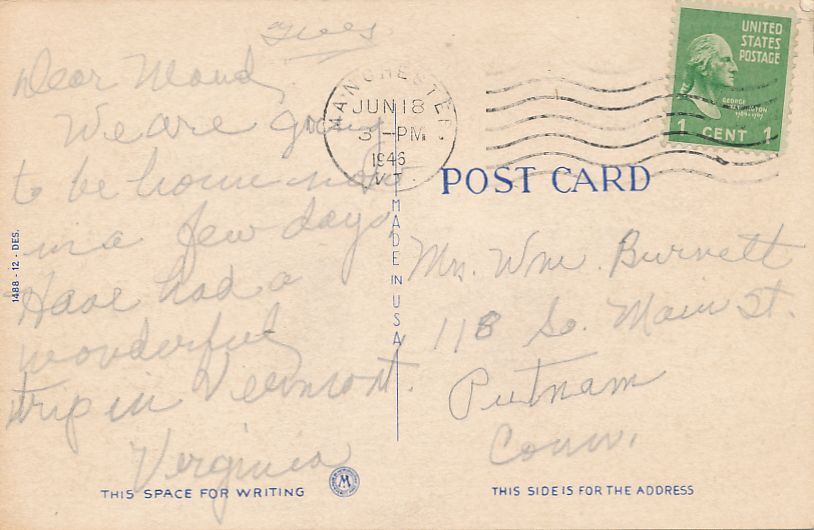 Tues
Dear Maud,
We are going
to be home now
in a few days,
Have had a
wonderful
trip in Vermont.
Virginia
MANCHESTER
JUN 18
3 - PM
1946
VT.
UNITED
STATES
POSTAGE
GEORGE
WASHINGTON
1789-1797
1 CENT 1
POST CARD
Mrs. Wm. Burnett
118 So. Main St.
Putnam
Conn.
1488 - 12 - DES.
MADE IN USA
M
THIS SPACE FOR WRITING
THIS SIDE IS FOR THE ADDRESS